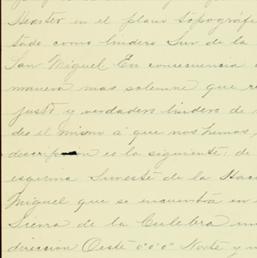 Theater en el plano topográfi
tado como lindero Sur de la
San Miguel En consecuencia
manera mas solemne que re
justo y verdadero lindero de
des el mismo a que nos hemos
descripcion es la siguiente: de
esquina Suroeste de la Haci
Miguel que se encuentra en
Sierra de la Culebra un
dirección Oeste 0°0'0" Norte y